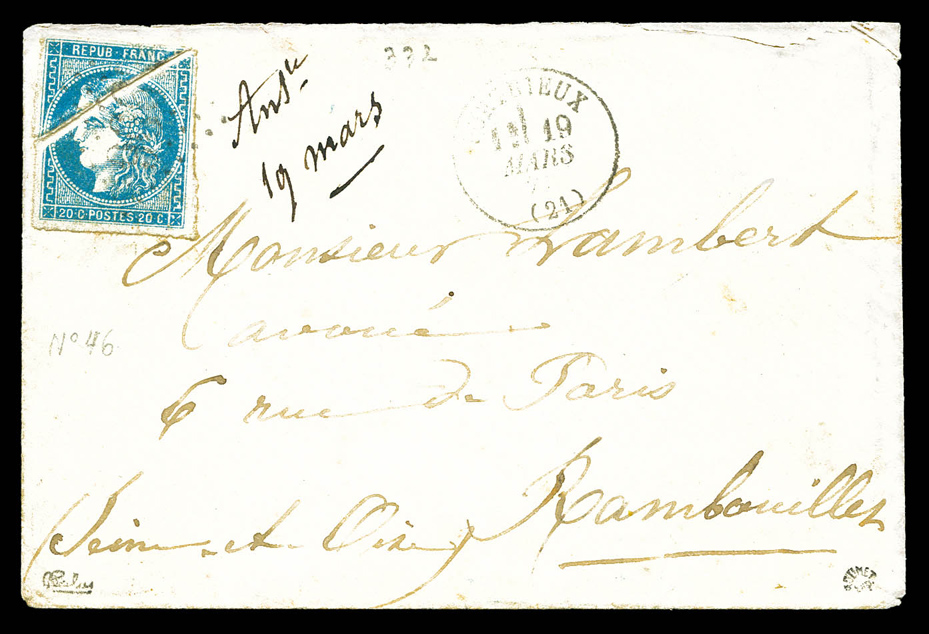 REPUB · FRANC
20 · C · POSTES · 20 C
19 mars
19
MARS
(21)
Monsieur Lambert
avoué
6 rue de Paris
Rambouillet
Seine et Oise
N° 46